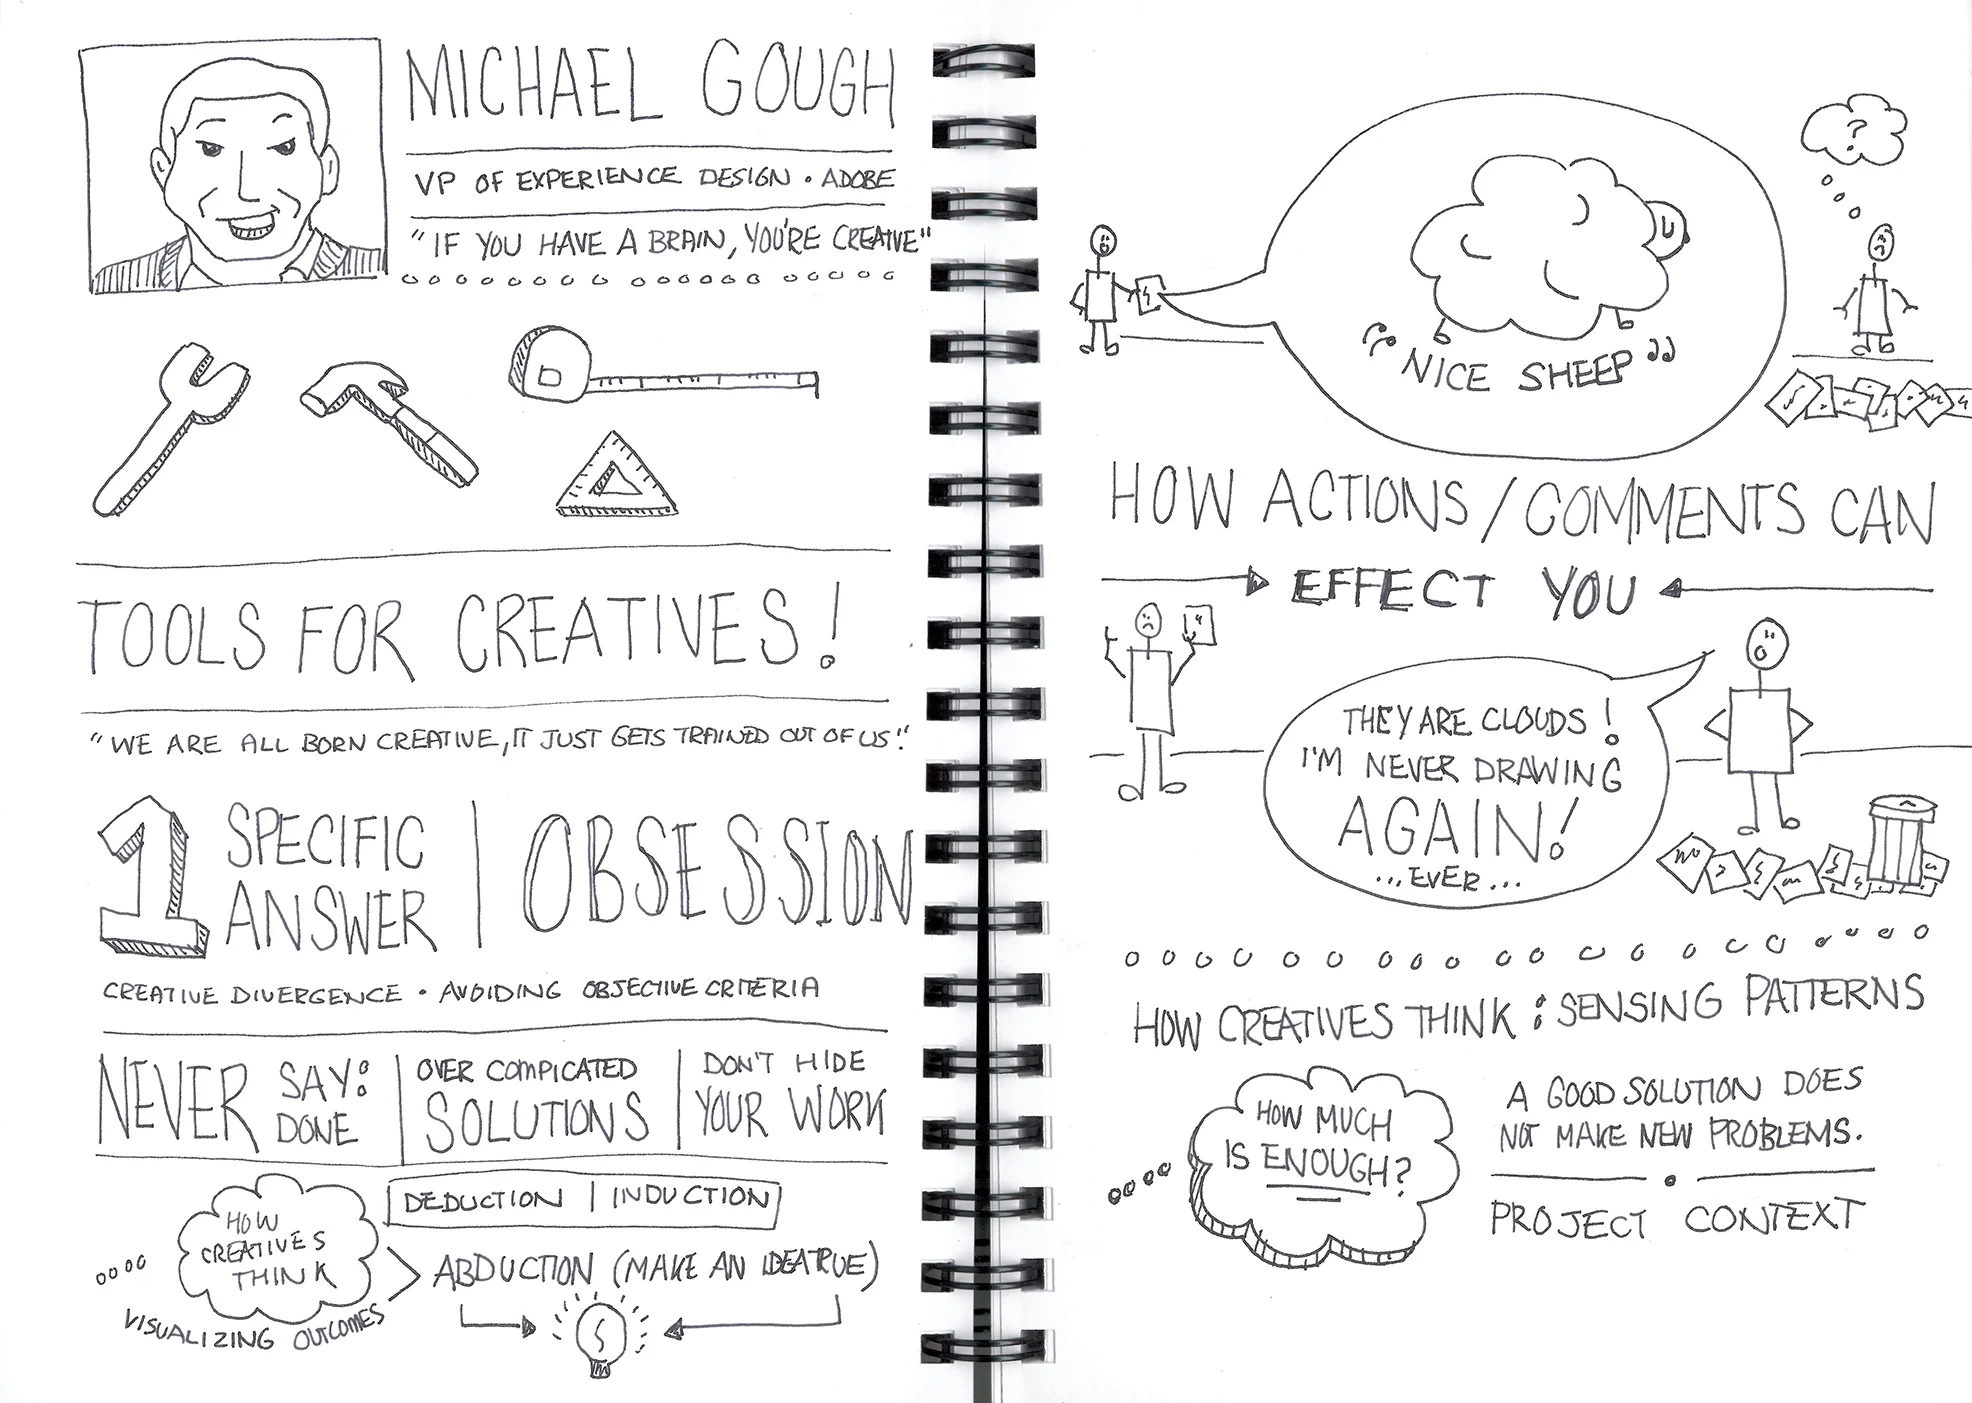 MICHAEL GOUGH
VP OF EXPERIENCE DESIGN • ADOBE
"IF YOU HAVE A BRAIN, YOU'RE CREATIVE"
TOOLS FOR CREATIVES!
"WE ARE ALL BORN CREATIVE, IT JUST GETS TRAINED OUT OF US!"
1 SPECIFIC
ANSWER
OBSESSION
CREATIVE DIVERGENCE • AVOIDING OBJECTIVE CRITERIA
NEVER SAY:
DONE
OVER COMPICATED
SOLUTIONS
DON'T HIDE
YOUR WORK
HOW
CREATIVES
THINK
VISUALIZING OUTCOMES
DEDUCTION | INDUCTION
ABDUCTION (MAKE AN IDEA TRUE)
?
NICE SHEEP
HOW ACTIONS/COMMENTS CAN
EFFECT YOU
THEY ARE CLOUDS!
I'M NEVER DRAWING
AGAIN!
...EVER...
HOW CREATIVES THINK: SENSING PATTERNS
HOW MUCH
IS ENOUGH?
A GOOD SOLUTION DOES
NOT MAKE NEW PROBLEMS.
PROJECT CONTEXT